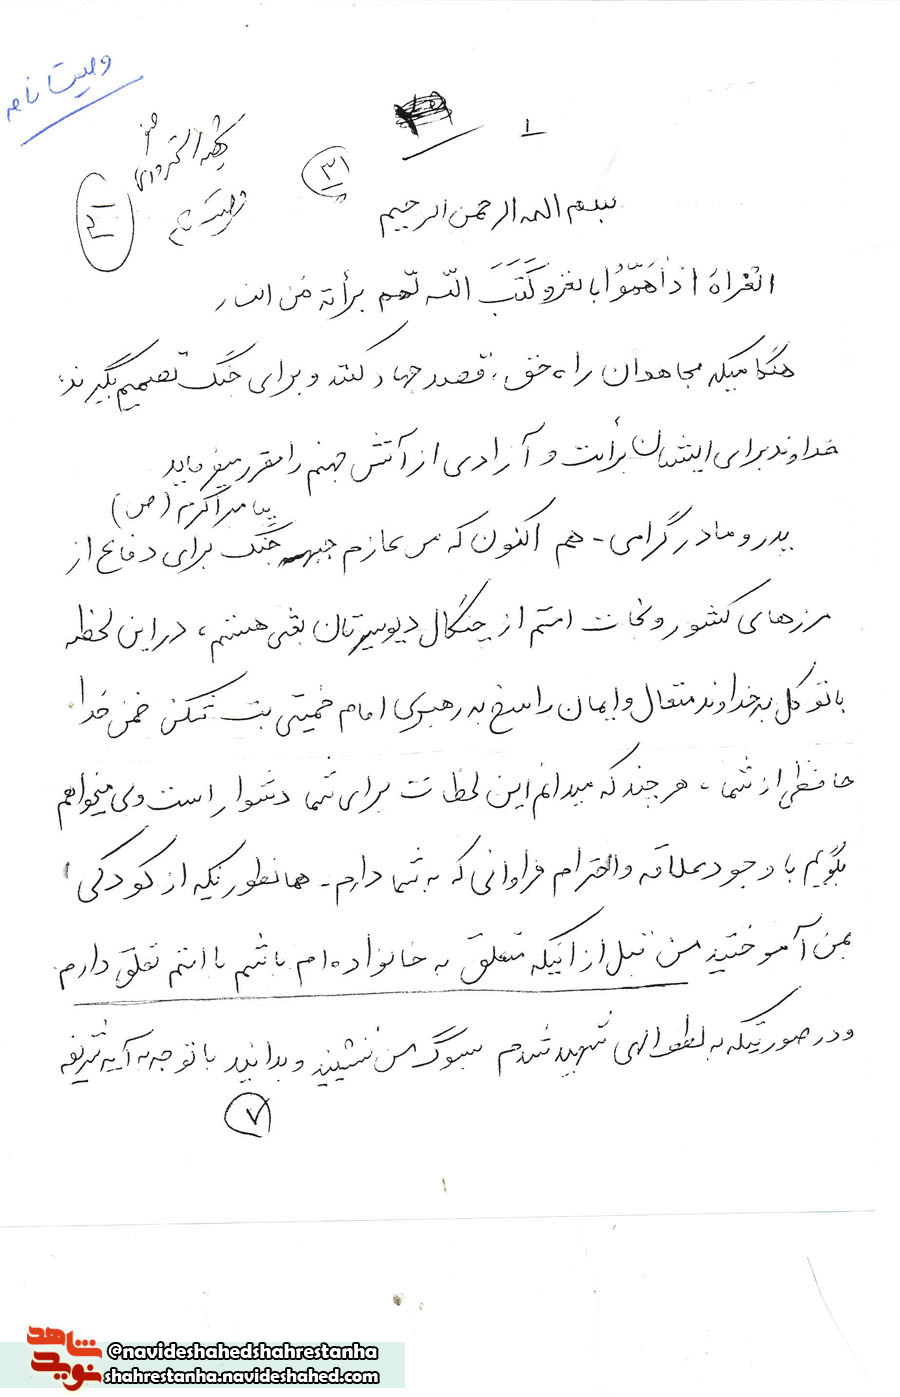 وصیت نامه
۱
۳۱
وصیت نامه
بسم اله الرحمن الرحیم
الغُزاهَ اِذاٰهَمُّواُ باالغزو کَتَبَ اللّه لَهم برأتهً مَن النار
هنگامیکه مجاهدان راه حق، قصد جهاد کنند و برای جنگ تصمیم بگیرند،
خداوند برای ایشان برأت و آزادی از آتش جهنم را مقرر میفرماید
پیامبر اکرم (ص)
پدر و مادر گرامی - هم اکنون که من عازم جبهه جنگ برای دفاع از
مرزهای کشور و نجات امتم از چنگال دیوسیرتان بعثی هستم، در این لحظه
با توکل به خداوند متعال و ایمان راسخ به رهبری امام خمینی بت شکن ضمن خدا
حافظی از شما، هر چند که میدانم این لحظات برای شما دشوار است ولی میخواهم
بگویم با وجود علاقه و احترام فراوانی که به شما دارم - همانطوریکه از کودکی
بمن آموختید من قبل از آنیکه متعلق به خانواده ام باشم با امتم تعلق دارم
و در صورتیکه به لطف الهی شهید شدم بسوگ من ننشینید و بدانید با توجه به آیه شریفه
۷
شاهد
نوید
@navideshahedshahrestanha
shahrestanha.navideshahed.com